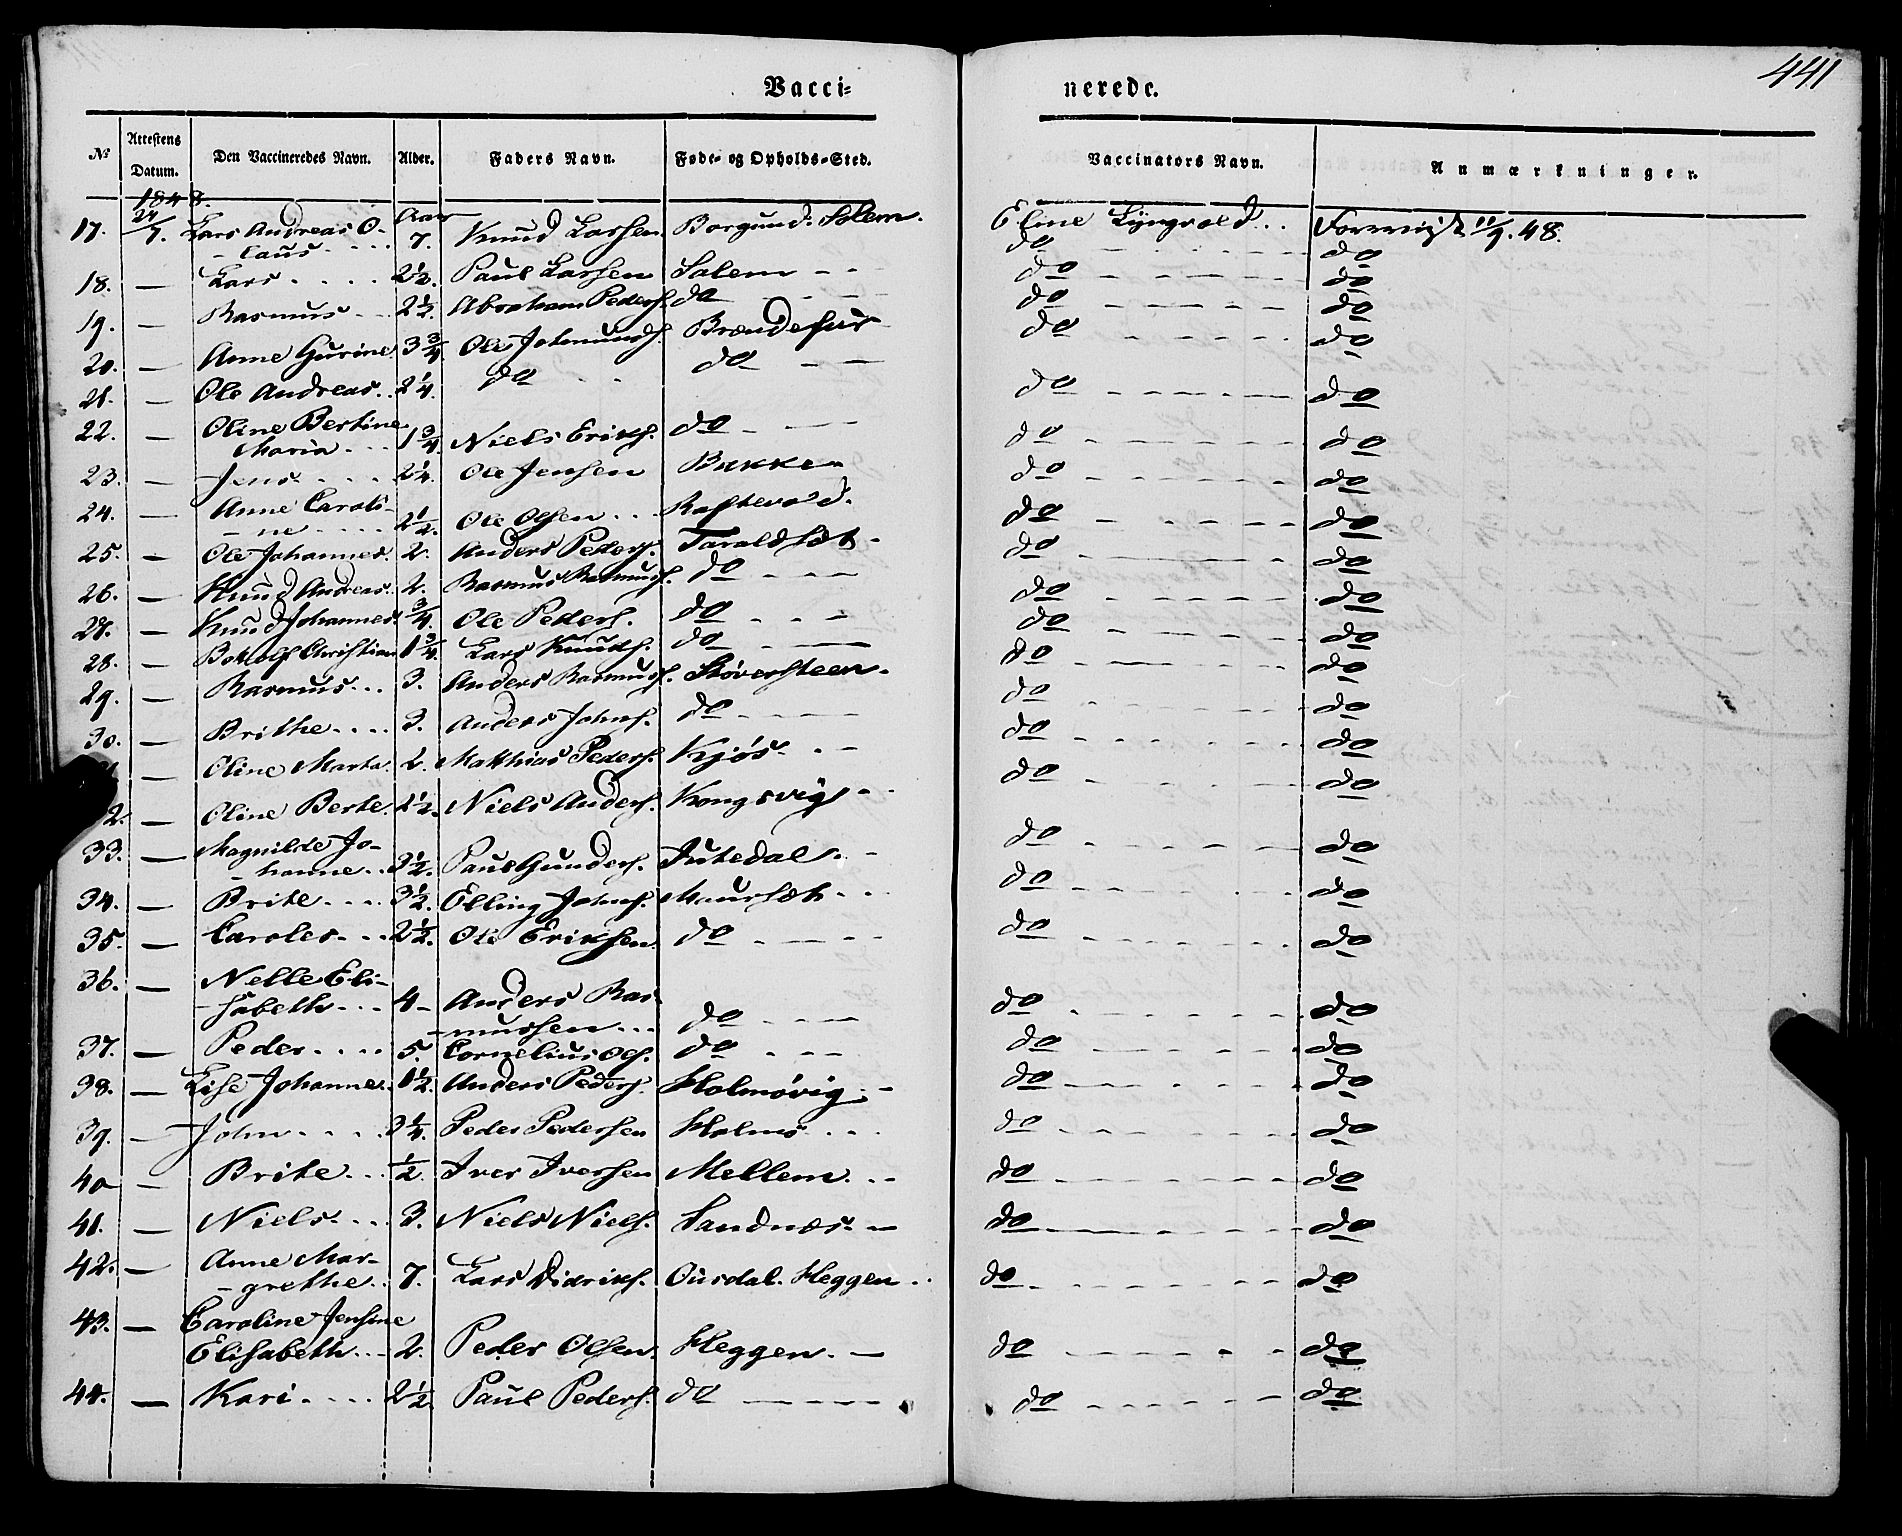 441
Vacci= nerede.
No Attestens Datum. Den Vaccineredes Navn. Alder. Faders Navn. Føde- og Opholds-Sted. Vaccinators Navn. Anmærkninger.
1848. Aar
17. 24/7. Lars Andreas O- 7. Knud Larsen. Borgund. Solem. Eline Lyngvold... Foreviist 11/9. 48.
- laus
18. — Lars .... 2 1/2. Paul Larsen Solem - - do - - - do
19. — Rasmus 2 1/2. Abraham Peders. do do - - - do
20. — Anne Gurine 3 3/4 Ole Johnunds. do - - - do
21. — Ole Andreas. 2 1/4. do - - do - - do - - - do
22. — Oline Bertine
Maria. 1 3/4 Niels Eriks. do - - - do - - - do
23. — Jens 2 1/4. Ole Jensen Bakke do - - - do
24. — Anne Caroli-
- ne 2 1/2. Ole Olsen... Raftevold. do - - - do
25. — Ole Johannes. 2. Anders Peders. Taraldset. do - - - do
26. — Knud Andreas. 2. Rasmus Rasmuss. do - - - do - - - do
27. — Knud Johannes 3/4. Ole Peders. do - - - do - - - do
28. — Christian 1 3/4. Lars Knuds. do - - - do - - - do
29. — Rasmus... 3. Anders Rasmuss. do - - - do
30. — Brithe.... 3. Anders Johns. do - - - do - - - do
— Oline Marta. 2. Matthias Peders. Kjøs - - do - - - do
2. — Oline Berte. 2 1/2. Niels Anders. Kongsvig - do - - - do
33. — Magnilde Jo-
- hanne.. 3 1/2. Paul Gunders. do - - - do
34. — Brite.... 3 1/2. Elling Johns. Maurset. do - - - do
35. — Caroles... 2 1/2. Ole Eriksen. do - - - do - - - do
36. — Nelle Eli-
- sabeth... 4- Anders Ras-
- mussen... do - - - do - - - do
37. — Peder.... 5. Cornelius Ols. do - - - do - - - do
38. — Lise Johanne. 1 1/2. Anders Peders. Holmøvig. - do - - - do
39. — John.... 3 1/4. Peder Pedersen Holmø... do - - - do
40 — Brite... 1/2. Iver Iversen Mellem... do - - - do
41. — Niels.... 3. Niels Niels. Sandnæs. - do - - - do
42. — Anne Mar-
- grethe.. 7. Lars Didriks. Ousdal. Heggen.. do - - - do
43. — Caroline Jensine
Elisabeth... 2. Peder Olsen. Heggen. — do - - - do
44. — Kari.... 2 1/2. Paul Peders. do - - - do - - - do